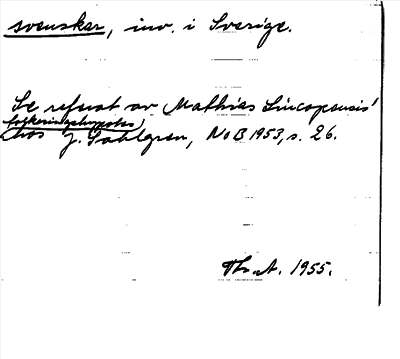 svenskar, inv. i Sverige.
Se referat av Mathias Lincopensis'
folkvandringshypotes
hos J. Sahlgren, NoB 1953, s. 26.
Th. A. 1955.